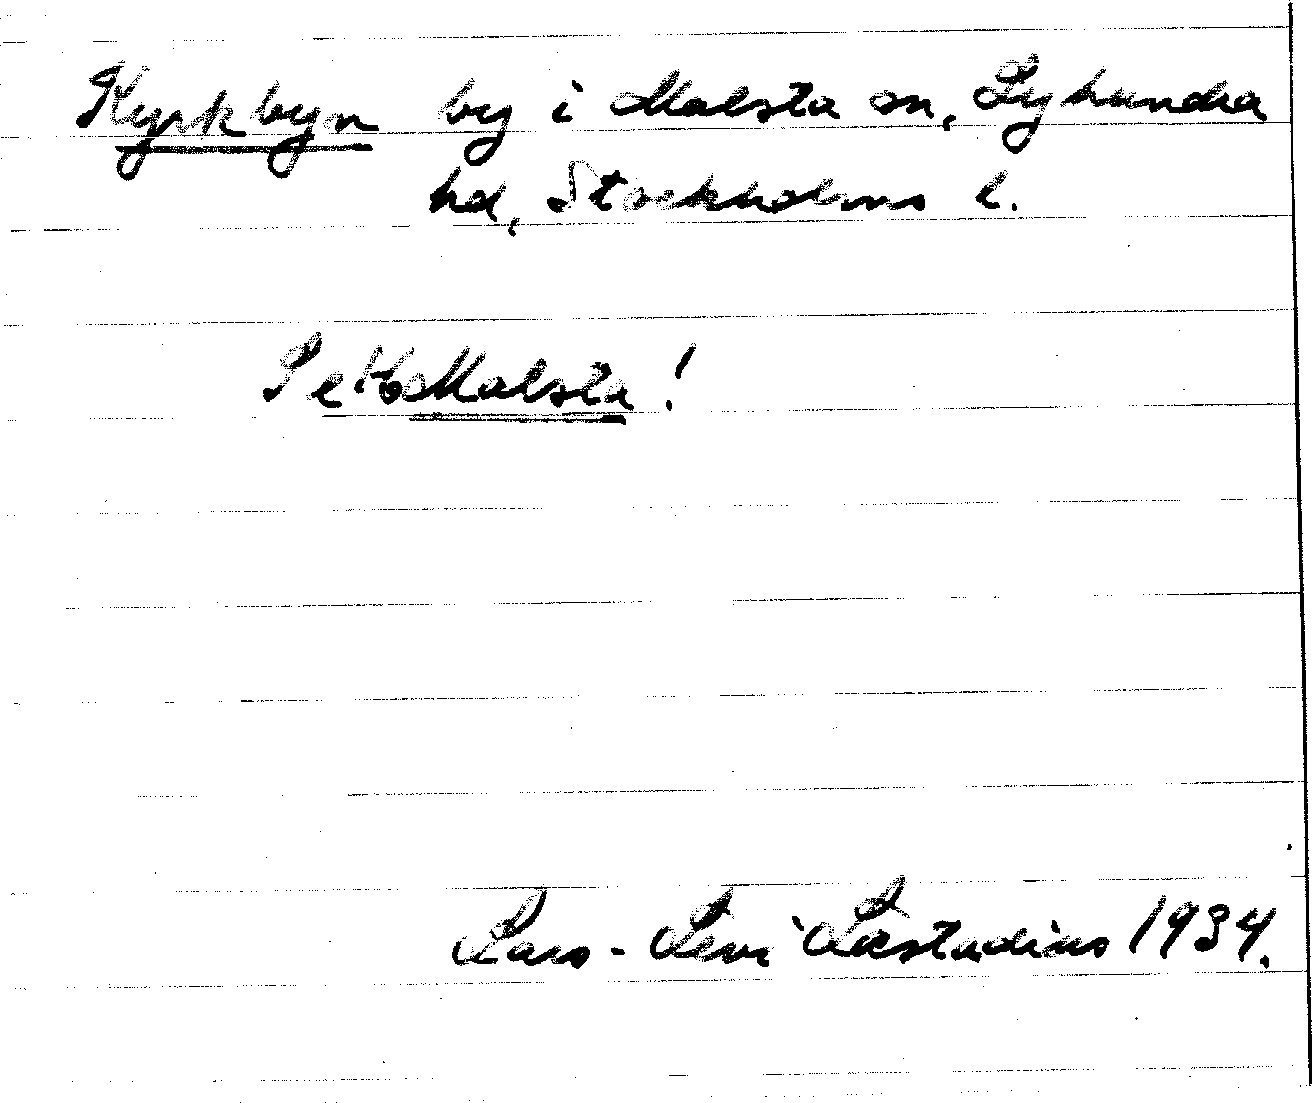 Kyrkbyn by i Malsta sn, Lyhundra
hd, Stockholms l.
Se Malsta!
Lars-Levi Læstadius 1934.